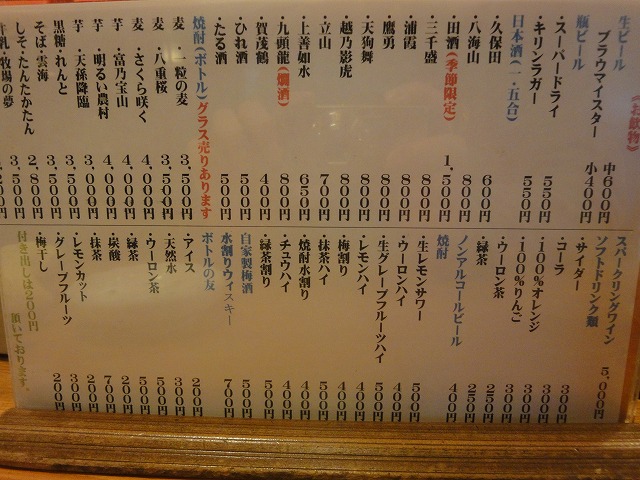 《お飲物》
生ビール
ブラウマイスター 中600円 小400円
瓶ビール
・スーパードライ 550円
・キリンラガー 550円
日本酒(一・五合)
・久保田 600円
・八海山 800円
・田酒(季節限定) 1,500円
・三千盛 800円
・浦霞 800円
・鷹勇 800円
・天狗舞 800円
・越乃影虎 800円
・立山 700円
・上善如水 650円
・九頭龍(燗酒) 800円
・賀茂鶴 400円
・ひれ酒 500円
・たる酒 500円
焼酎(ボトル)グラス売りあります
麦 ・一粒の麦 3,500円
麦 ・八重桜 3,500円
麦 ・さくら咲く 4,000円
芋 ・富乃宝山 4,000円
芋 ・明るい農村 3,000円
芋 ・天孫降臨 3,500円
黒糖・れんと 3,500円
そば・雲海 2,800円
しそ・たんたかたん 3,500円
牛乳・牧場の夢
スパークリングワイン 5,000円
ソフトドリンク類
・サイダー 300円
・コーラ 300円
・100%オレンジ 300円
・100%りんご 300円
・ウーロン茶 250円
・緑茶 250円
ノンアルコールビール 400円
焼酎
・生レモンサワー 500円
・ウーロンハイ 400円
・生グレープフルーツハイ 500円
・レモンハイ 400円
・梅割り 400円
・抹茶ハイ 500円
・焼酎水割り 400円
・チュウハイ 400円
・緑茶割り 500円
自家製梅酒 500円
水割りウィスキー 700円
ボトルの友
・アイス 200円
・天然水 300円
・ウーロン茶 500円
・緑茶 500円
・炭酸 200円
・抹茶 700円
・レモンカット 200円
・グレープフルーツ 300円
・梅干し 200円
付き出しは200円
頂いております。